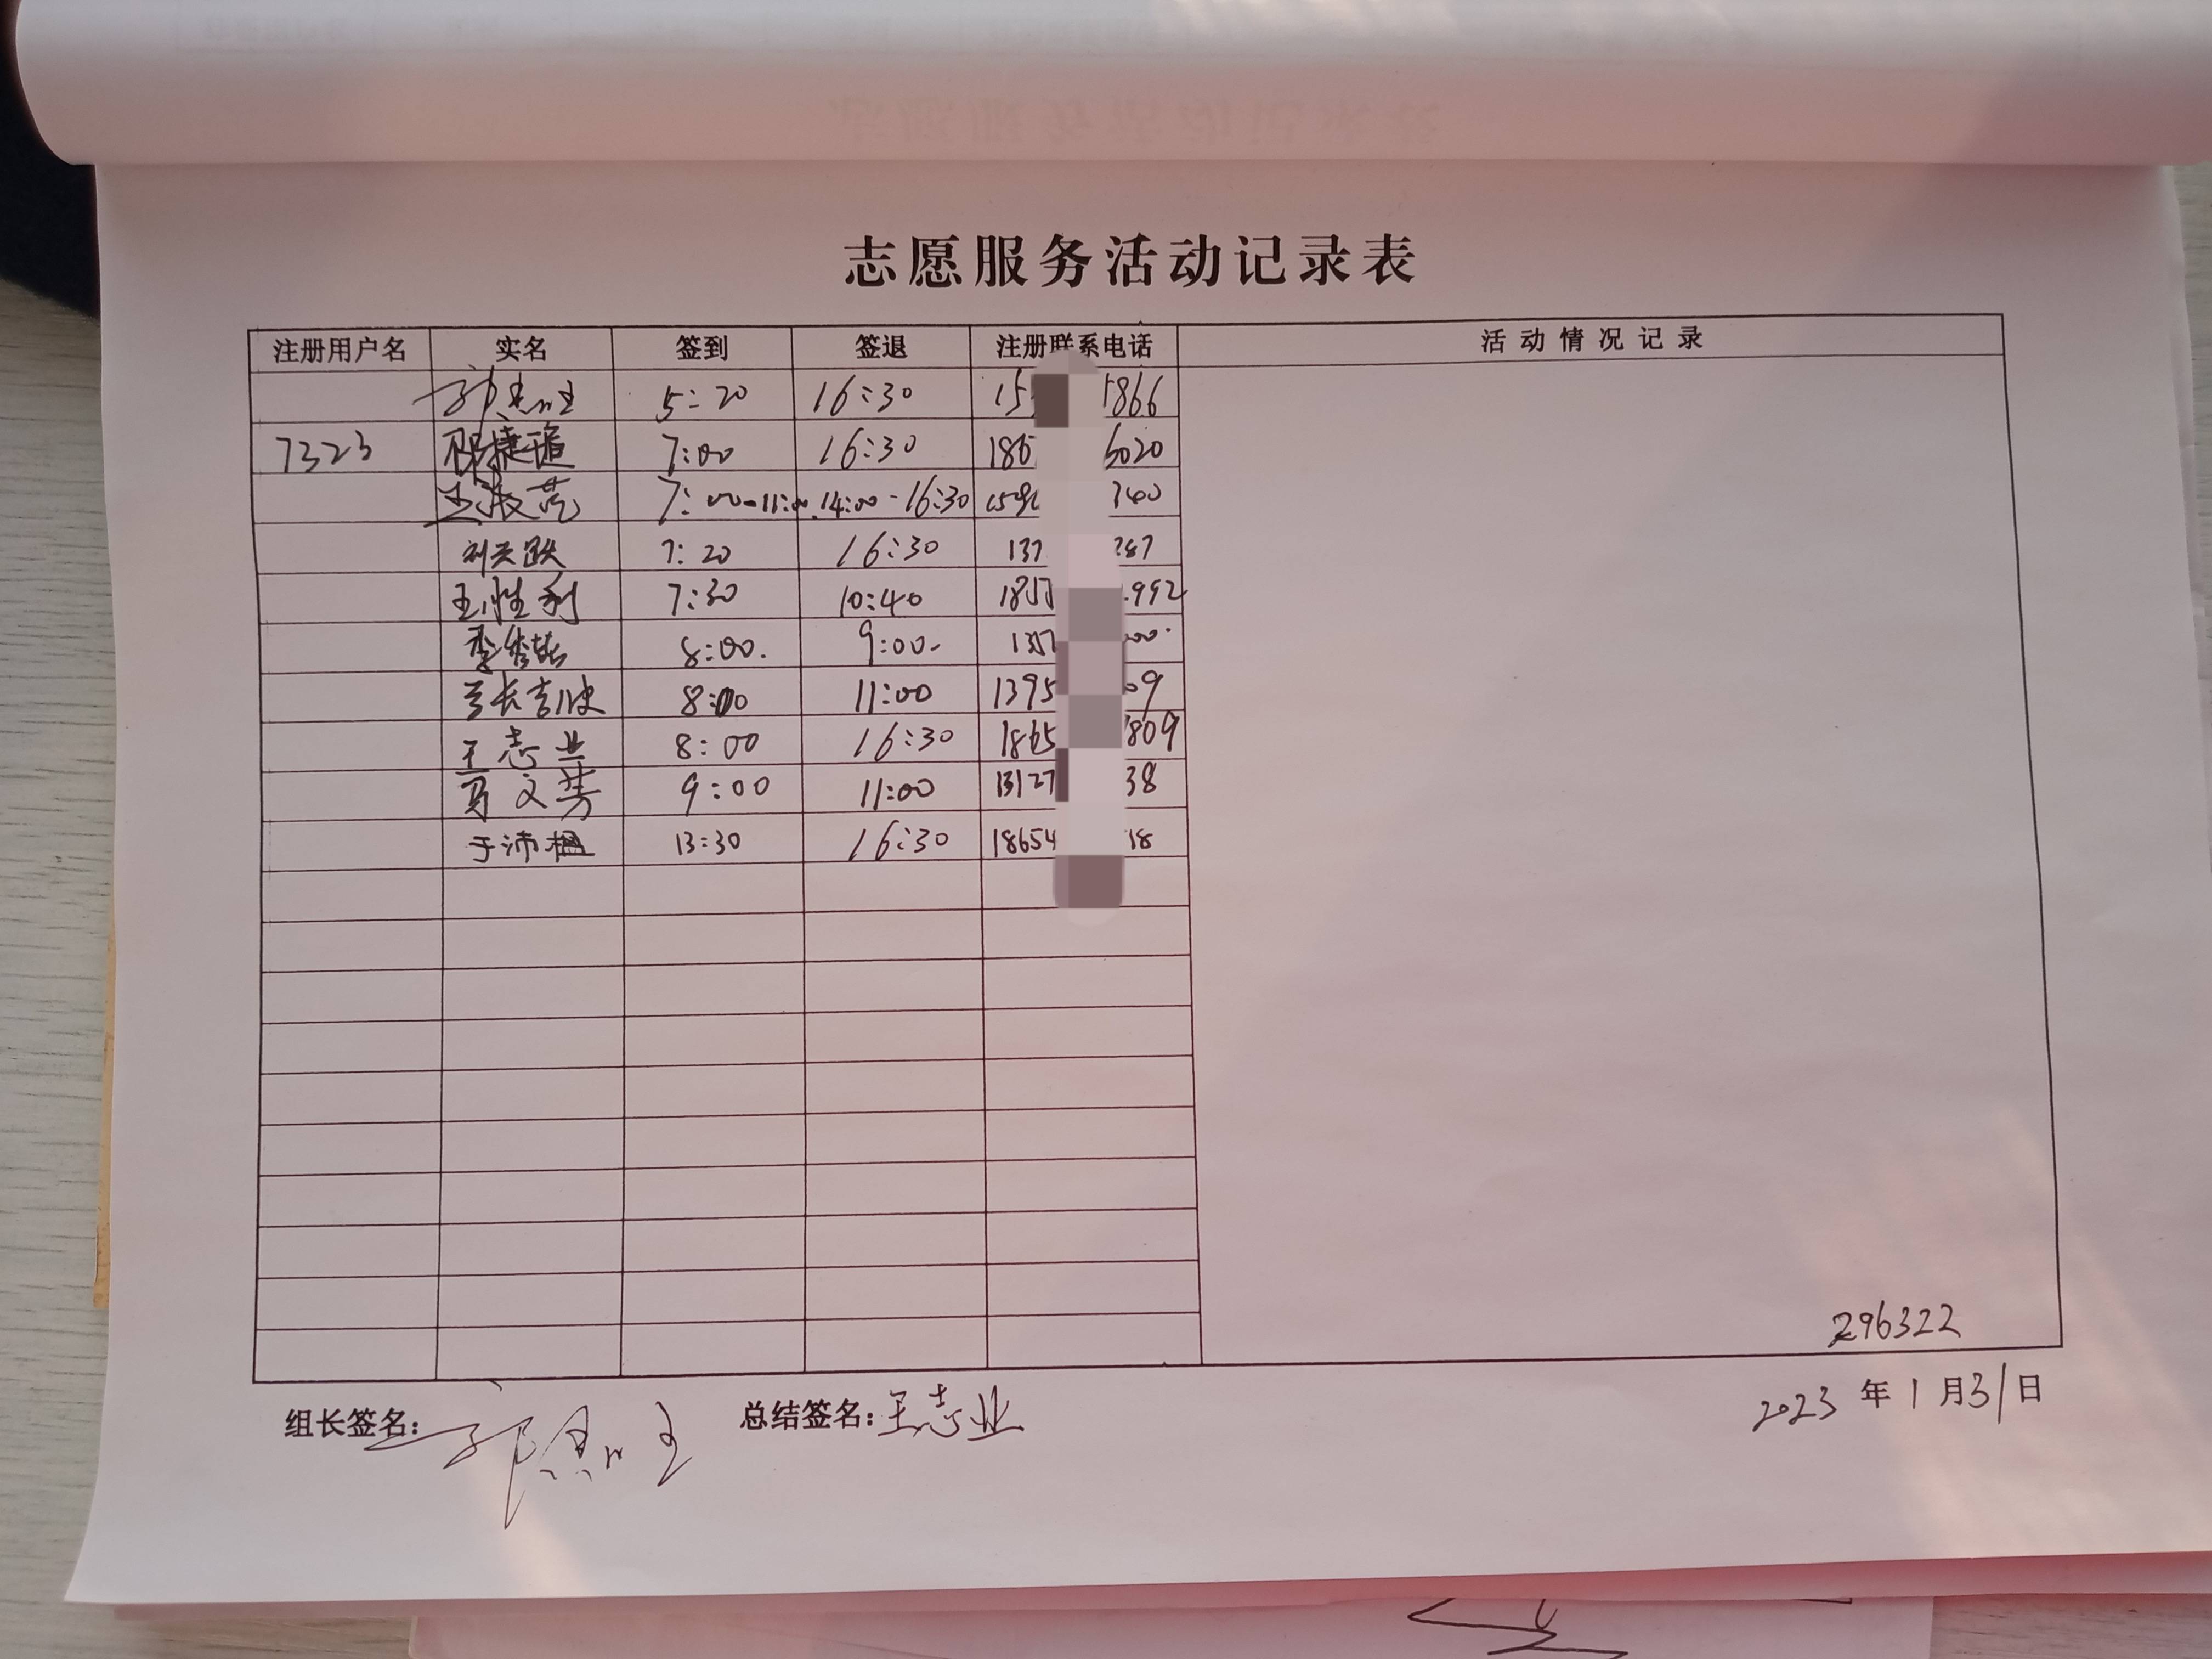 志愿服务活动记录表
注册用户名 实名 签到 签退 注册联系电话 活动情况记录
5:20 16:30 15 1866
7323 7:00 16:30 186 6020
7:00-11:00 14:00-16:30 159 340
刘天跃 7:20 16:30 137 287
王胜利 7:30 10:40 1857 992
8:00. 9:00- 1357 00
8:00 11:00 1395 09
王志业 8:00 16:30 1865 809
马文芳 9:00 11:00 13127 38
于沛楹 13:30 16:30 18654 18
296322
组长签名: 总结签名:王志业 2023年1月31日